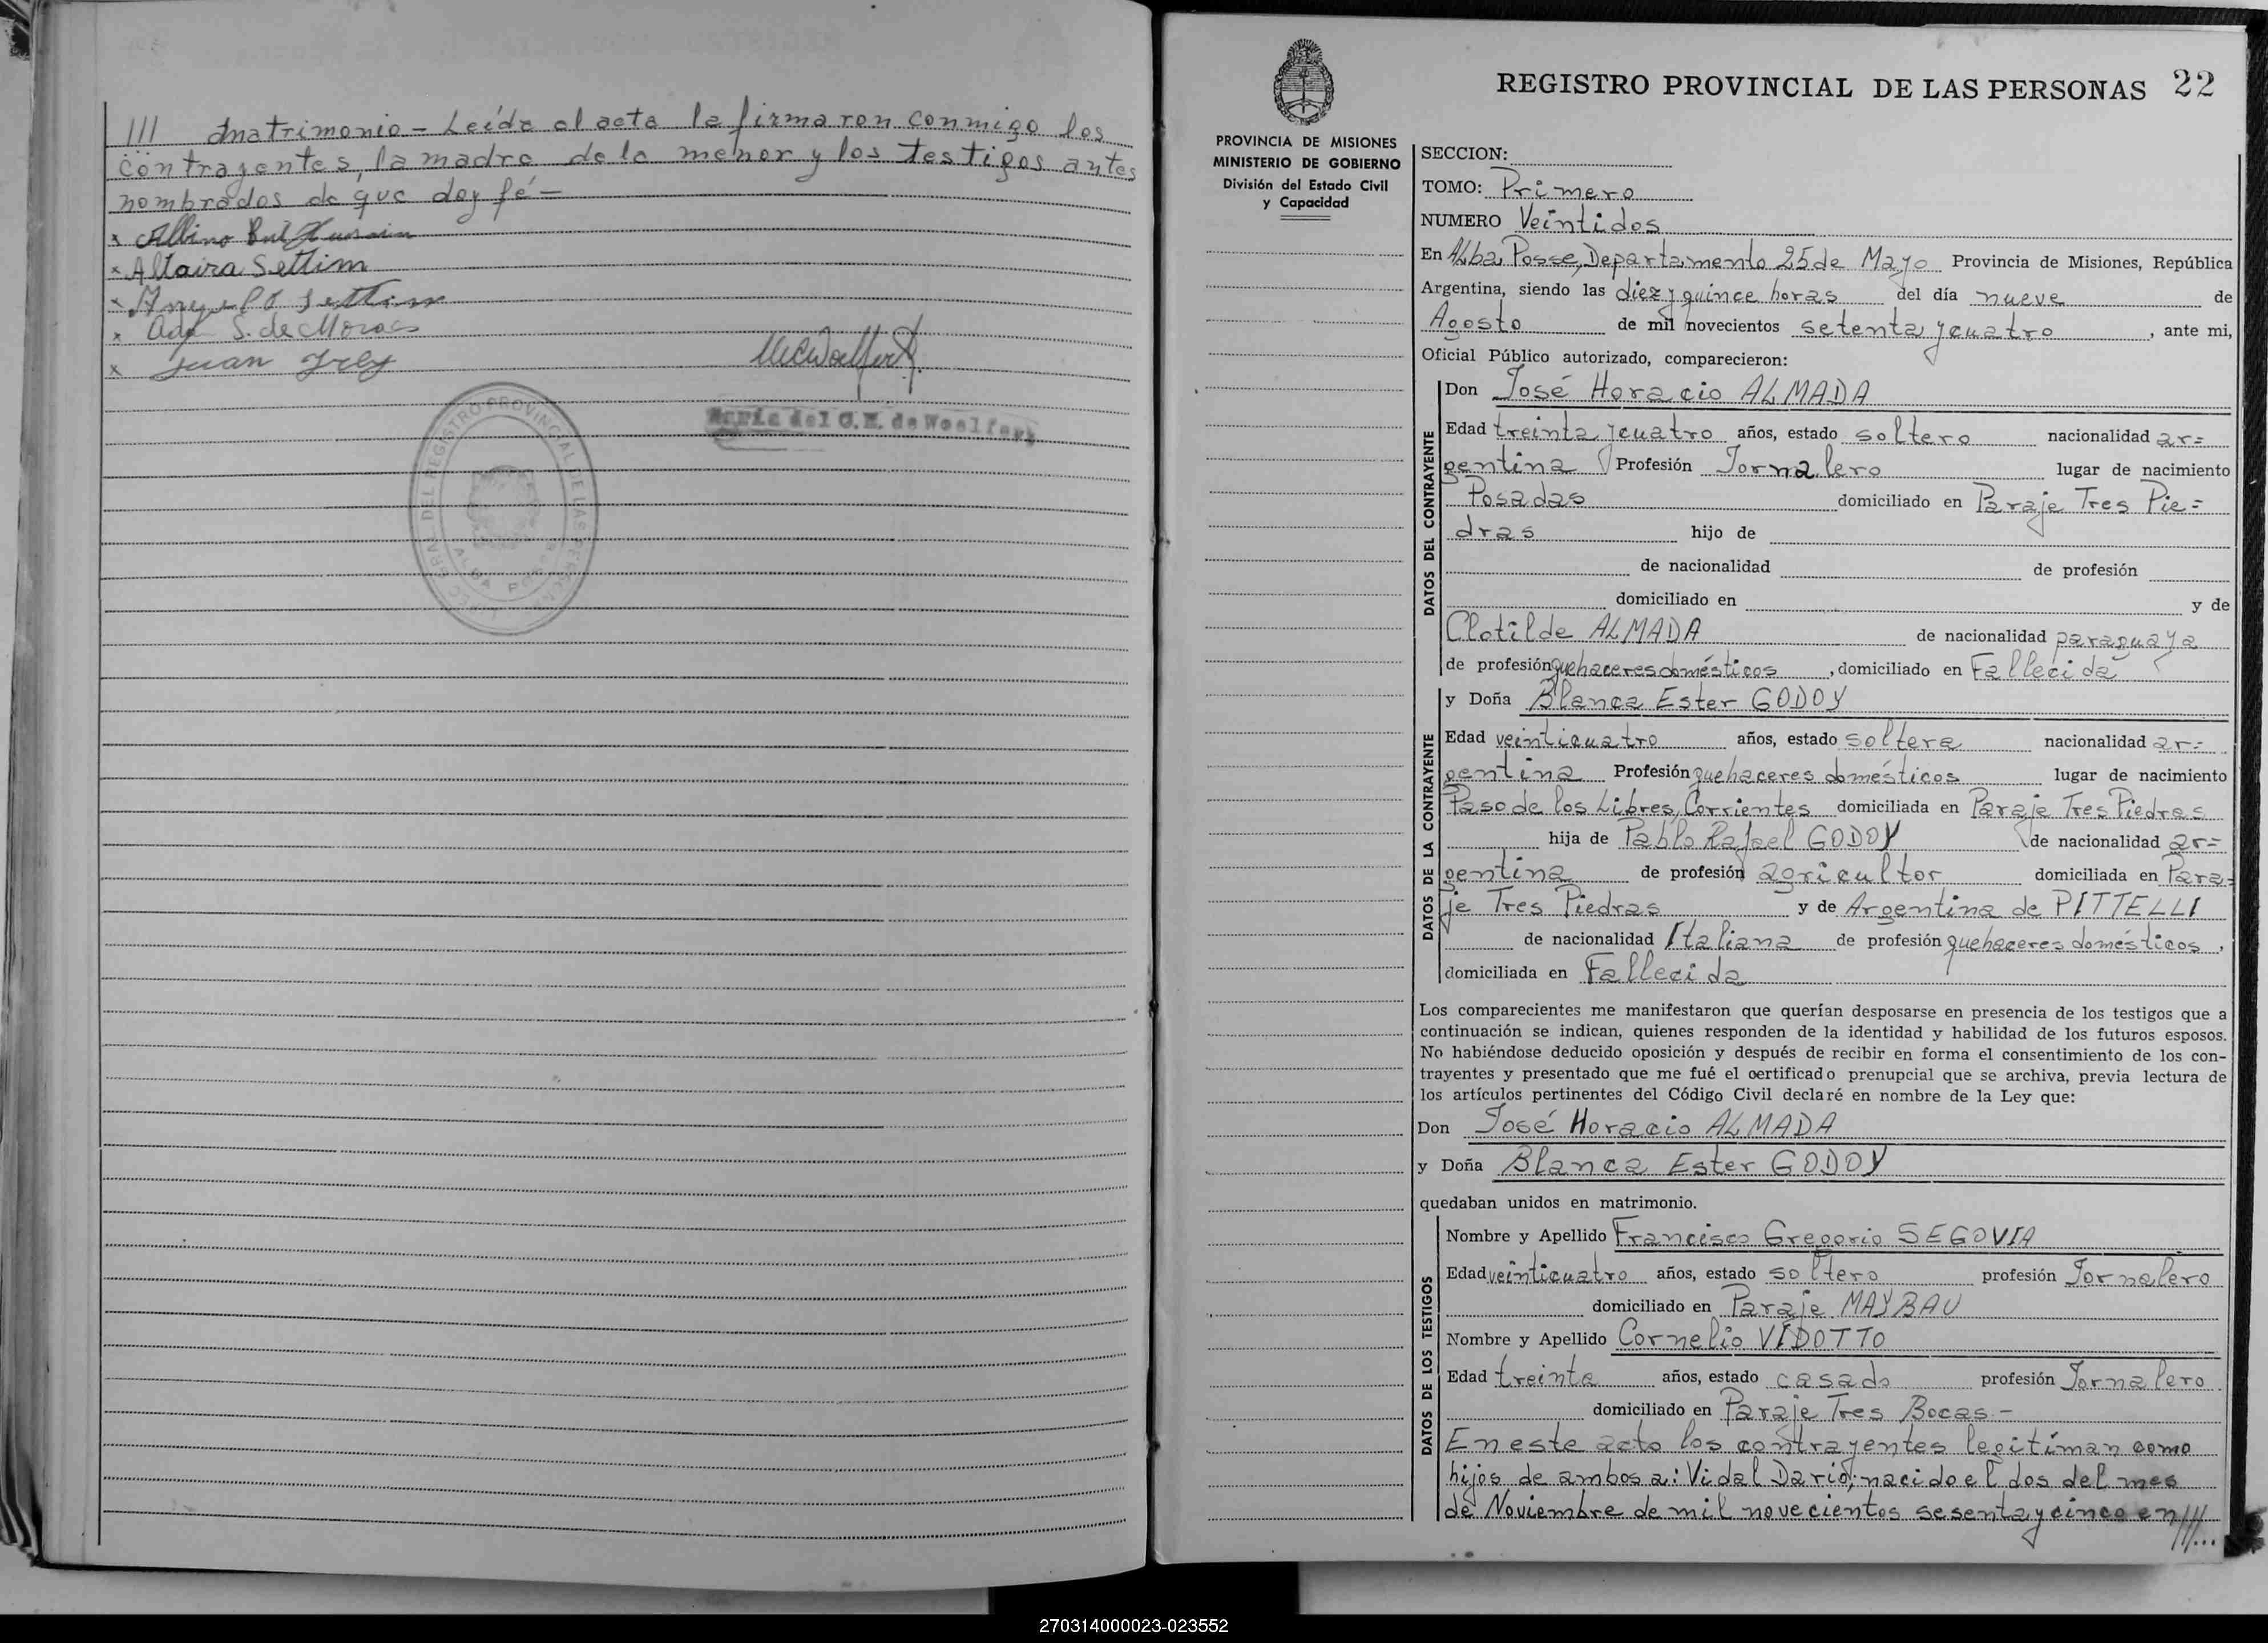 /// matrimonio - Leída el acta la firmaron conmigo los
contrayentes, la madre de la menor y los testigos antes
nombrados de que doy fé -
x Albino
x Altaira Settim
x Settim
x S. de Moraes
x Juan
María del C. M. de Woelfert
DEL REGISTRO PROVINCIAL DE LAS PERSONAS
ALBA POSSE
REGISTRO PROVINCIAL DE LAS PERSONAS 22
PROVINCIA DE MISIONES
MINISTERIO DE GOBIERNO
División del Estado Civil
y Capacidad
SECCION:
TOMO: Primero
NUMERO Veintidos
En Alba Posse, Departamento 25 de Mayo Provincia de Misiones, República
Argentina, siendo las diez y quince horas del día nueve de
Agosto de mil novecientos setenta y cuatro, ante mi,
Oficial Público autorizado, comparecieron:
DATOS DEL CONTRAYENTE
Don José Horacio ALMADA
Edad treinta y cuatro años, estado soltero nacionalidad ar=
gentina Profesión Jornalero lugar de nacimiento
Posadas domiciliado en Paraje Tres Pie=
dras hijo de
de nacionalidad de profesión
domiciliado en y de
Clotilde ALMADA de nacionalidad paraguaya
de profesión quehaceres domésticos, domiciliado en Fallecida
DATOS DE LA CONTRAYENTE
y Doña Blanca Ester GODOY
Edad veinticuatro años, estado soltera nacionalidad ar=
gentina Profesión quehaceres domésticos lugar de nacimiento
Paso de los Libres, Corrientes domiciliada en Paraje Tres Piedras
hija de Pablo Rafael GODOY de nacionalidad ar=
gentina de profesión agricultor domiciliada en Para=
je Tres Piedras y de Argentina de PITTELLI
de nacionalidad Italiana de profesión quehaceres domésticos,
domiciliada en Fallecida
Los comparecientes me manifestaron que querían desposarse en presencia de los testigos que a
continuación se indican, quienes responden de la identidad y habilidad de los futuros esposos.
No habiéndose deducido oposición y después de recibir en forma el consentimiento de los con-
trayentes y presentado que me fué el certificado prenupcial que se archiva, previa lectura de
los artículos pertinentes del Código Civil declaré en nombre de la Ley que:
Don José Horacio ALMADA
y Doña Blanca Ester GODOY
quedaban unidos en matrimonio.
DATOS DE LOS TESTIGOS
Nombre y Apellido Francisco Gregorio SEGOVIA
Edad veinticuatro años, estado soltero profesión Jornalero
domiciliado en Paraje MAYBAU
Nombre y Apellido Cornelio VIDOTTO
Edad treinta años, estado casado profesión Jornalero
domiciliado en Paraje Tres Bocas -
En este acto los contrayentes legitiman como
hijos de ambos a: Vidal Darío; nacido el dos del mes
de Noviembre de mil novecientos sesenta y cinco en ///...
270314000023-023552